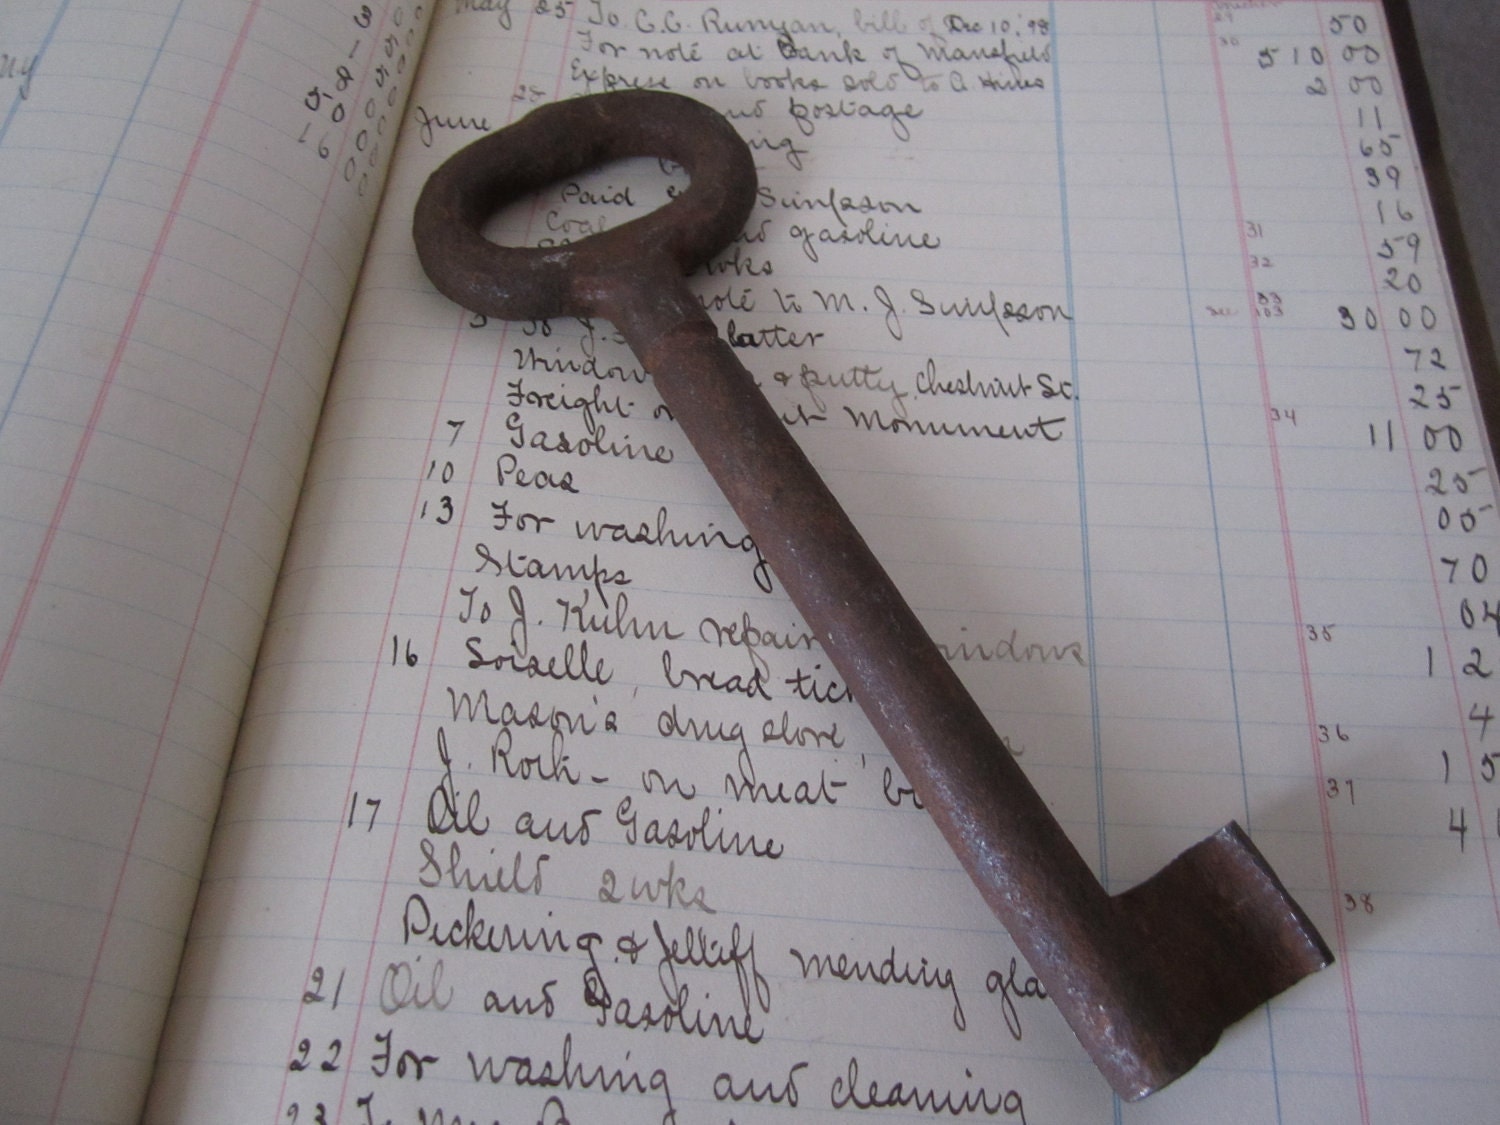 May 25 To C.C. Runyan, bill of Dec 10, '98 50
For note at Bank of Mansfield 30 510 00
Express on books sold to A. Hines 2 00
28 and postage 11
June 65
39
Paid Simpson 16
Coal and gasoline 31 59
wks 32 20
note to M. J. Simpson 33 103 30 00
3 To J. latter 72
Window & putty, Chestnut St. 25
Freight on Monument 34 11 00
7 Gasoline 25
10 Peas 05
13 For washing 70
Stamps 04
To J. Kuhn repair windows 35 1 2
16 Soiselle, bread tic 4
Mason's drug store, 36 1 5
J. Rock - on meat 37 4
17 Oil and Gasoline
Shield 2 wks 38
Pickering & Jelliff mending gla
21 Oil and Gasoline
22 For washing and cleaning
23 To Mrs